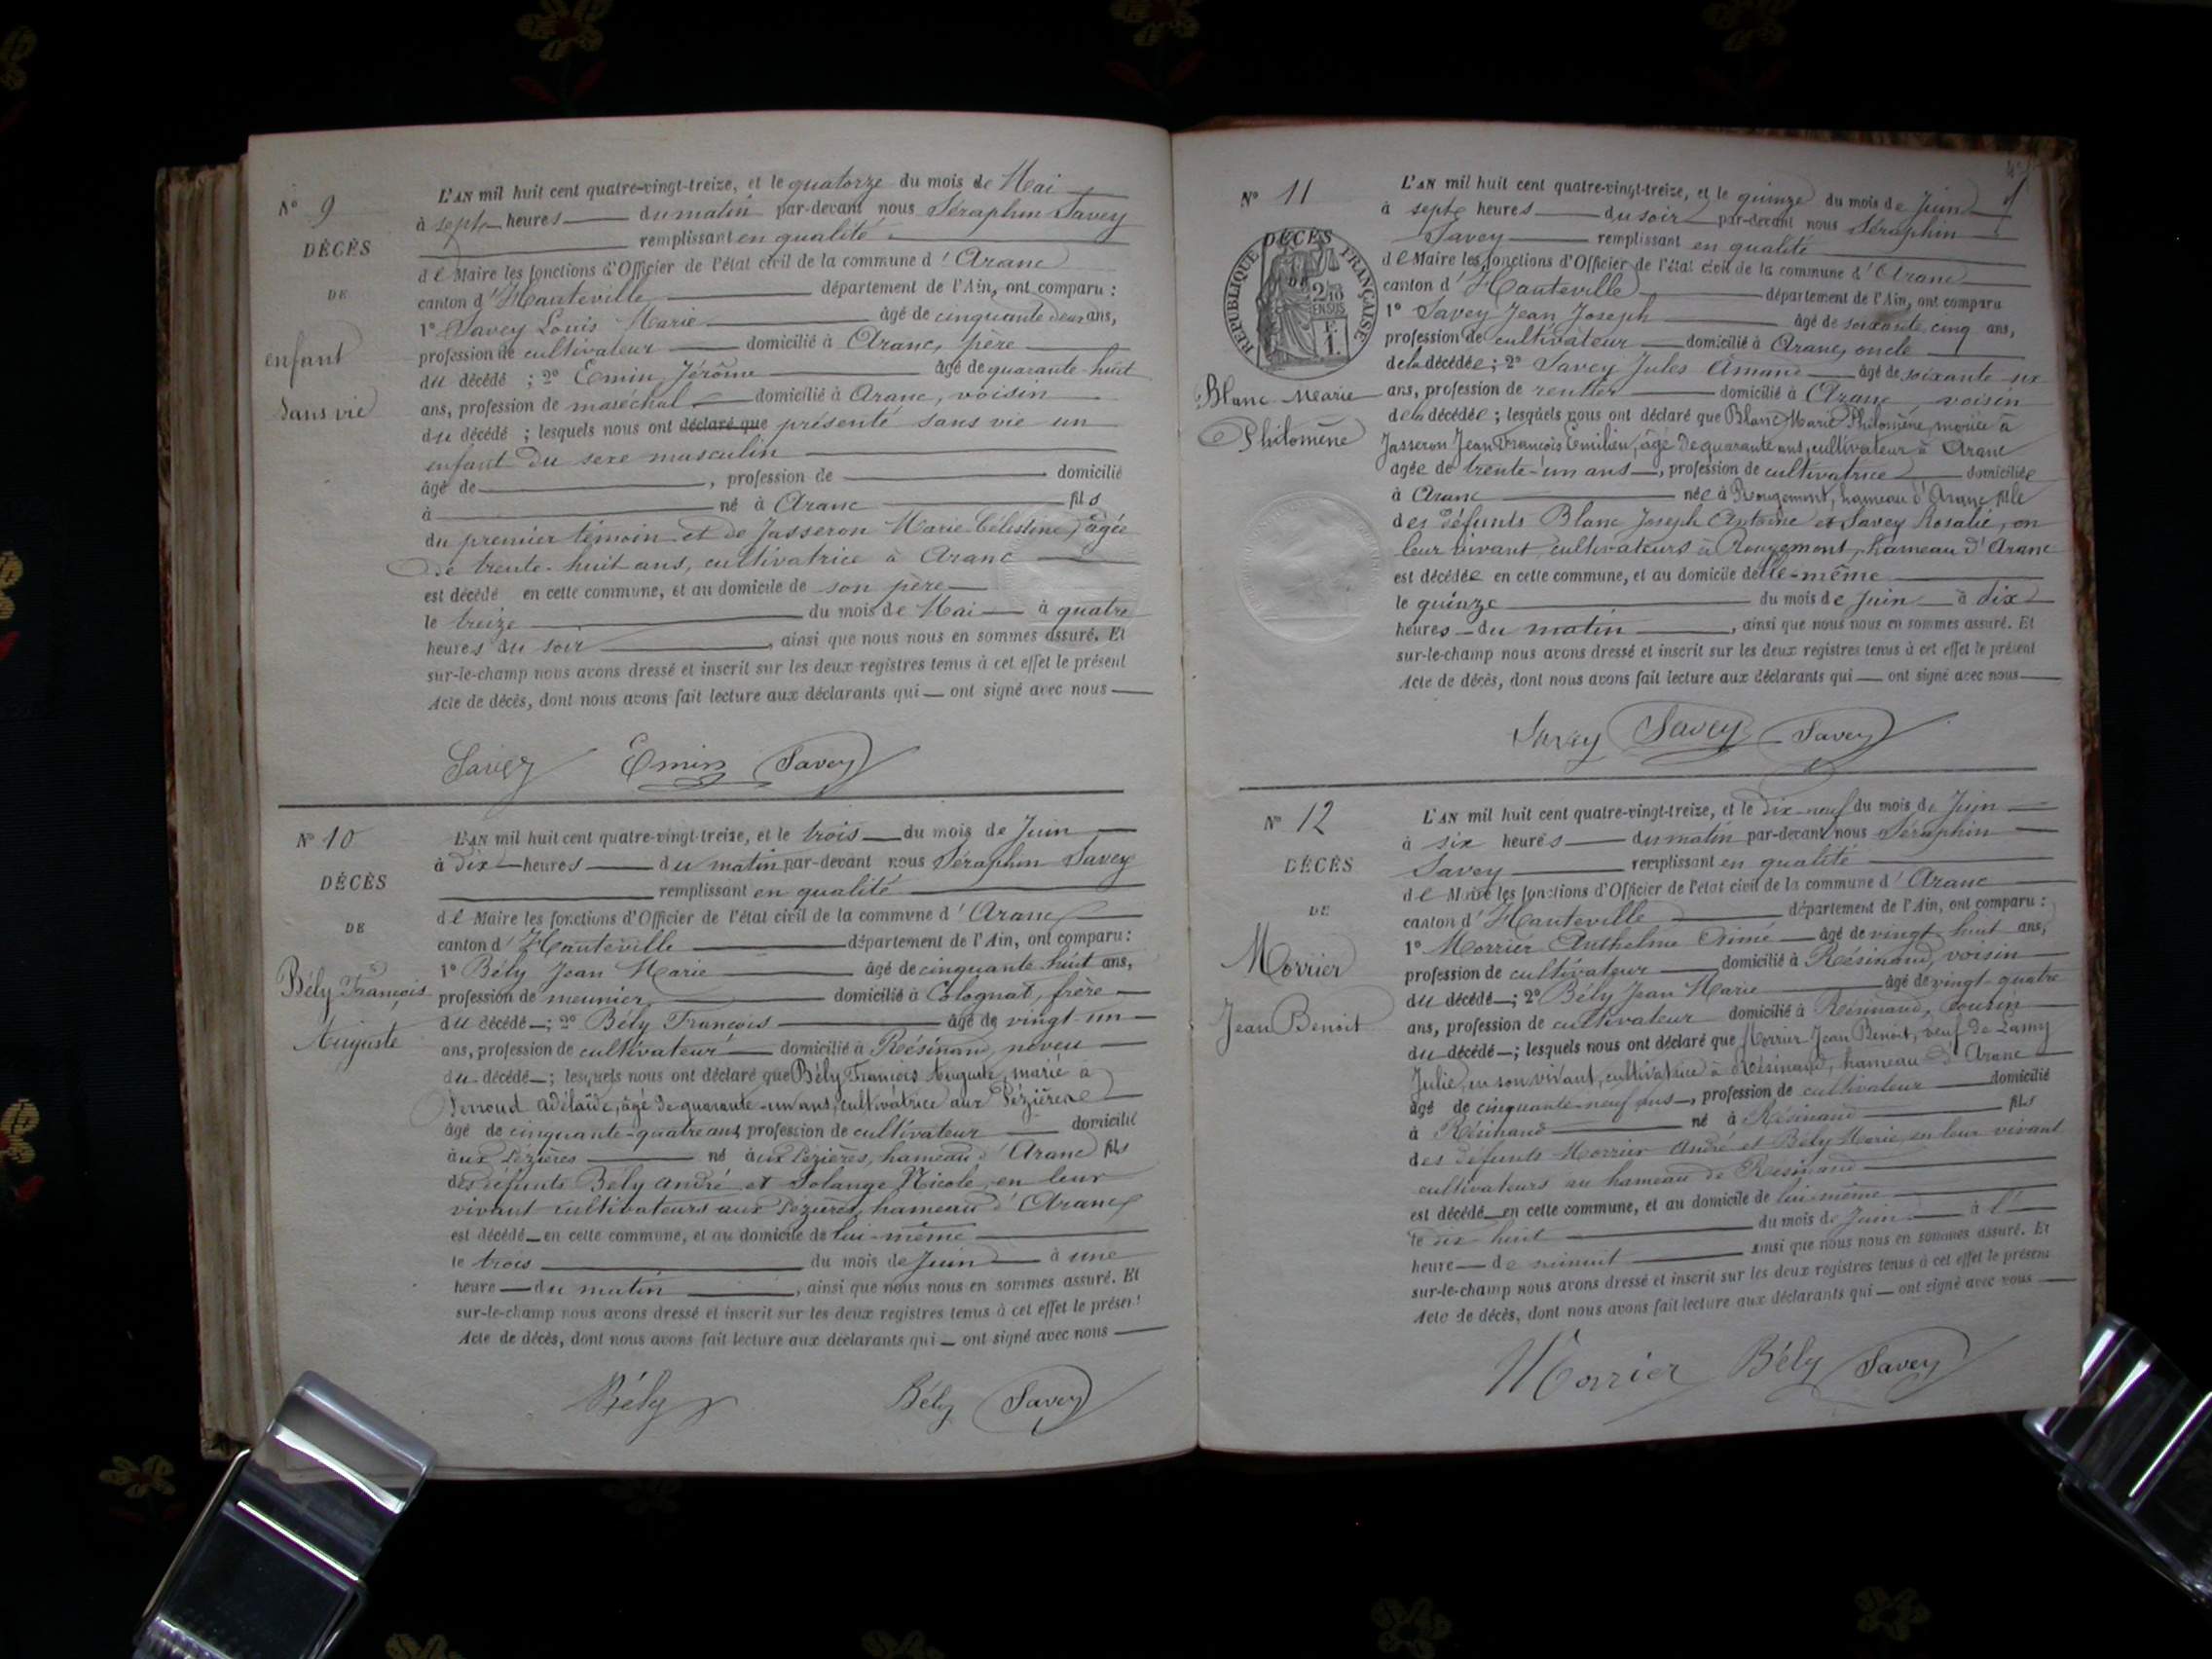 N° 9
DÉCÈS
DE
enfant
sans vie
L'AN mil huit cent quatre-vingt-treize, et le quatorze du mois de Mai
à sept heures du matin par-devant nous Séraphin Savey
remplissant en qualité
de Maire les fonctions d'Officier de l'état civil de la commune d'Aranc
canton d'Hauteville département de l'Ain, ont comparu :
1° Savey Louis Marie âgé de cinquante deux ans,
profession de cultivateur domicilié à Aranc, père
du décédé ; 2° Emin Jérôme âgé de quarante-huit
ans, profession de maréchal domicilié à Aranc, voisin
du décédé ; lesquels nous ont déclaré que présenté sans vie un
enfant du sexe masculin
âgé de , profession de domicilié
à né à Aranc fils
du premier témoin et de Jasseron Marie Célestine, âgée
de trente-huit ans, cultivatrice à Aranc
est décédé en cette commune, et au domicile de son père
le treize du mois de Mai à quatre
heures du soir , ainsi que nous nous en sommes assuré. Et
sur-le-champ nous avons dressé et inscrit sur les deux registres tenus à cet effet le présent
Acte de décès, dont nous avons fait lecture aux déclarants qui ont signé avec nous
Savey Emin Savey
N° 10
DÉCÈS
DE
Bély François
Auguste
L'AN mil huit cent quatre-vingt-treize, et le trois du mois de Juin
à dix heures du matin par-devant nous Séraphin Savey
remplissant en qualité
de Maire les fonctions d'Officier de l'état civil de la commune d'Aranc
canton d'Hauteville département de l'Ain, ont comparu :
1° Bély Jean Marie âgé de cinquante-huit ans,
profession de meunier domicilié à Colognat, frère
du décédé ; 2° Bély François âgé de vingt-un
ans, profession de cultivateur domicilié à Résinand, neveu
du décédé ; lesquels nous ont déclaré que Bély François Auguste, marié à
Perroud Adélaïde, âgé de quarante-un ans, cultivatrice aux Pézières
âgé de cinquante-quatre ans profession de cultivateur domicilié
aux Pézières né aux Pézières, hameau d'Aranc fils
des défunts Bély André et Solange Nicole, en leur
vivant cultivateurs aux Pézières, hameau d'Aranc
est décédé en cette commune, et au domicile de lui-même
le trois du mois de Juin à une
heure du matin , ainsi que nous nous en sommes assuré. Et
sur-le-champ nous avons dressé et inscrit sur les deux registres tenus à cet effet le présent
Acte de décès, dont nous avons fait lecture aux déclarants qui ont signé avec nous
Bély Bély Savey
N° 11
DÉCÈS
DE
RÉPUBLIQUE FRANÇAISE
2/10
EN SUS
1 F.
Blanc Marie
Philomène
L'AN mil huit cent quatre-vingt-treize, et le quinze du mois de Juin
à sept heures du soir par-devant nous Séraphin
Savey remplissant en qualité
de Maire les fonctions d'Officier de l'état civil de la commune d'Aranc
canton d'Hauteville département de l'Ain, ont comparu
1° Savey Jean Joseph âgé de soixante cinq ans,
profession de cultivateur domicilié à Aranc, oncle
de la décédée ; 2° Savey Jules Amand âgé de soixante-six
ans, profession de rentier domicilié à Aranc voisin
de la décédée ; lesquels nous ont déclaré que Blanc Marie Philomène, mariée à
Jasseron Jean François Emilien, âgé de quarante ans, cultivateur à Aranc
agée de trente-un ans , profession de cultivatrice domiciliée
à Aranc née à Rougemont, hameau d'Aranc fille
des défunts Blanc Joseph Antoine et Savey Rosalie, en
leur vivant cultivateurs à Rougemont, hameau d'Aranc
est décédée en cette commune, et au domicile d'elle-même
le quinze du mois de Juin à dix
heures du matin , ainsi que nous nous en sommes assuré. Et
sur-le-champ nous avons dressé et inscrit sur les deux registres tenus à cet effet le présent
Acte de décès, dont nous avons fait lecture aux déclarants qui ont signé avec nous
Savey Savey Savey
N° 12
DÉCÈS
DE
Morrier
Jean Benoit
L'AN mil huit cent quatre-vingt-treize, et le dix-neuf du mois de Juin
à six heures du matin par-devant nous Séraphin
Savey remplissant en qualité
de Maire les fonctions d'Officier de l'état civil de la commune d'Aranc
canton d'Hauteville département de l'Ain, ont comparu :
1° Morrier Anthelme Aimé âgé de vingt huit ans,
profession de cultivateur domicilié à Résinand, voisin
du décédé ; 2° Bély Jean Marie âgé de vingt-quatre
ans, profession de cultivateur domicilié à Résinand, cousin
du décédé ; lesquels nous ont déclaré que Morrier Jean Benoit, veuf de Lamy
Julie, en son vivant, cultivatrice à Résinand, hameau d'Aranc
âgé de cinquante-neuf ans , profession de cultivateur domicilié
à Résinand né à Résinand fils
des défunts Morrier André et Bély Marie, en leur vivant
cultivateurs au hameau de Résinand
est décédé en cette commune, et au domicile de lui-même
le dix-huit du mois de Juin à l'
heure de minuit ainsi que nous nous en sommes assuré. Et
sur-le-champ nous avons dressé et inscrit sur les deux registres tenus à cet effet le présent
Acte de décès, dont nous avons fait lecture aux déclarants qui ont signé avec nous
Morrier Bély Savey